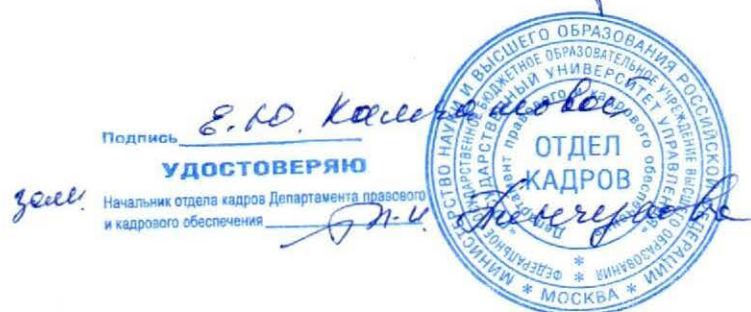 Подпись Е.Ю. Камчатовой
УДОСТОВЕРЯЮ
зам. Начальник отдела кадров Департамента правового
и кадрового обеспечения
МИНИСТЕРСТВО НАУКИ И ВЫСШЕГО ОБРАЗОВАНИЯ РОССИЙСКОЙ ФЕДЕРАЦИИ
* МОСКВА *
ФЕДЕРАЛЬНОЕ ГОСУДАРСТВЕННОЕ БЮДЖЕТНОЕ ОБРАЗОВАТЕЛЬНОЕ УЧРЕЖДЕНИЕ ВЫСШЕГО ОБРАЗОВАНИЯ
ГОСУДАРСТВЕННЫЙ УНИВЕРСИТЕТ УПРАВЛЕНИЯ
Департамент правового и кадрового обеспечения
ОТДЕЛ
КАДРОВ